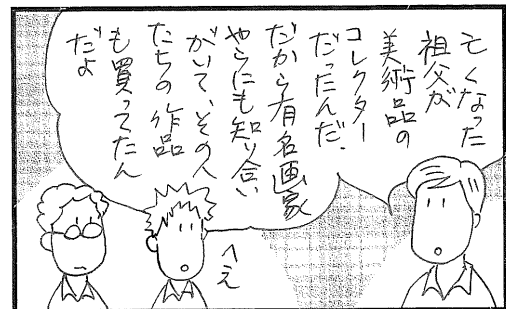 亡くなった
祖父が
美術品の
コレクター
だったんだ、
だから有名画家
やらにも知り合い
がいて、その人
たちの作品
も買ってたん
だよ
へえ